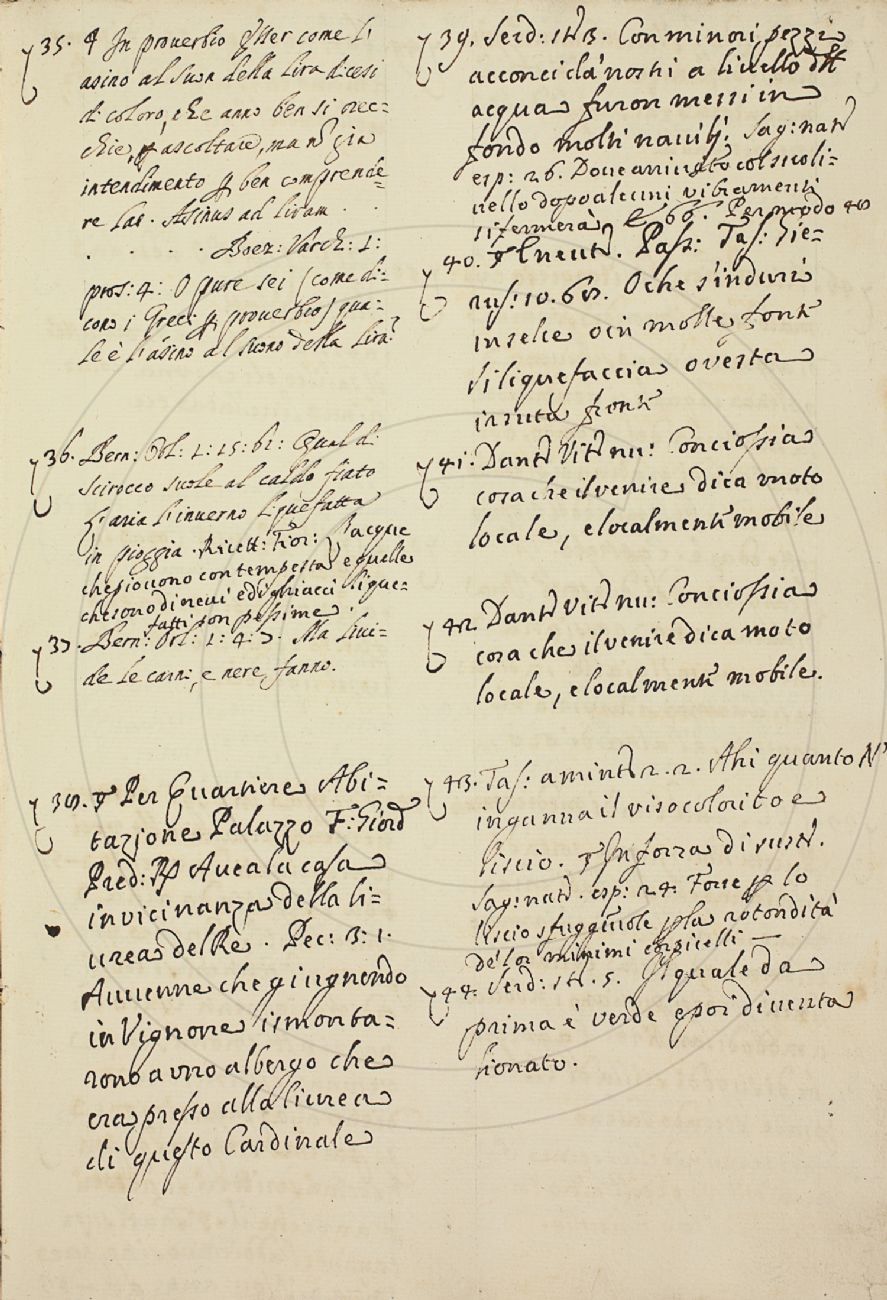 35. ¶ In proverbio esser come l'
asino al suon della lira dicesi
di coloro, che anno ben sì orec=
chie, p ascoltare, ma nō già
intendimento p ben comprende=
re lat. Asinus ad liram . .
. . . . Boez: Varch: 1:
pros: 4: O pure sei (come di=
cono i Greci p proverbio) qua=
le è l'asino al suono della lira?
36. Bern: Orl: 1: 15: 61: Qual di
scirocco suole al caldo fiato
l'aria l'inverno liquefatta
in pioggia. Ricett: Fior: l'acque
che piovono con tempesta e quelle
che sono di nevi e di ghiacci lique=
fatti son pessime.
37. Bern: Orl: 1: 4: 7. Ma livi=
de le carni, e nere fanno.
38. ¶ Per Quartiere Abi=
tazione Palazzo F: Giord
Pred: Avea la casa
in vicinanza della li=
urea del Re. Pec: 3: 1.
Auuenne che giugnendo
in Vignone ismonta=
rono a uno albergo che
era presso alla liurea
di questo Cardinale
39. Serd: st 3. Con minori pezzi
acconci da nostri a livello dell
acqua furon messi in
fondo molti navilj. Sag: nat
esp: 26. Dove arrivato col suo li=
vello dopo alcuni vibramenti
si fermerà, e 66. Per modo
40. ¶ E neut. Pass: Tas: Gie=
rus: 10. 68. O che s'induri
in selce o in molle fonte
si liquefaccia o vesta
irsuta fronte
41. Dant Vit nu: Conciossia
cosa che il venire dica moto
locale, e localmente mobile
42. Dant Vit nu: Conciossia
cosa che il venire dica moto
locale, e localmente mobile.
43. Tas: amint 2. 2. Ahi quanto N'
inganna il viso colorito e
liscio. ¶ In forza di sust.
Sag: nat. esp: 24. Forse p lo
liscio sfuggevole p la rotondità
de' lor minimi corpicelli —
44. Serd: st. 5. Il quale da
prima è verde e poi diventa
lionato.